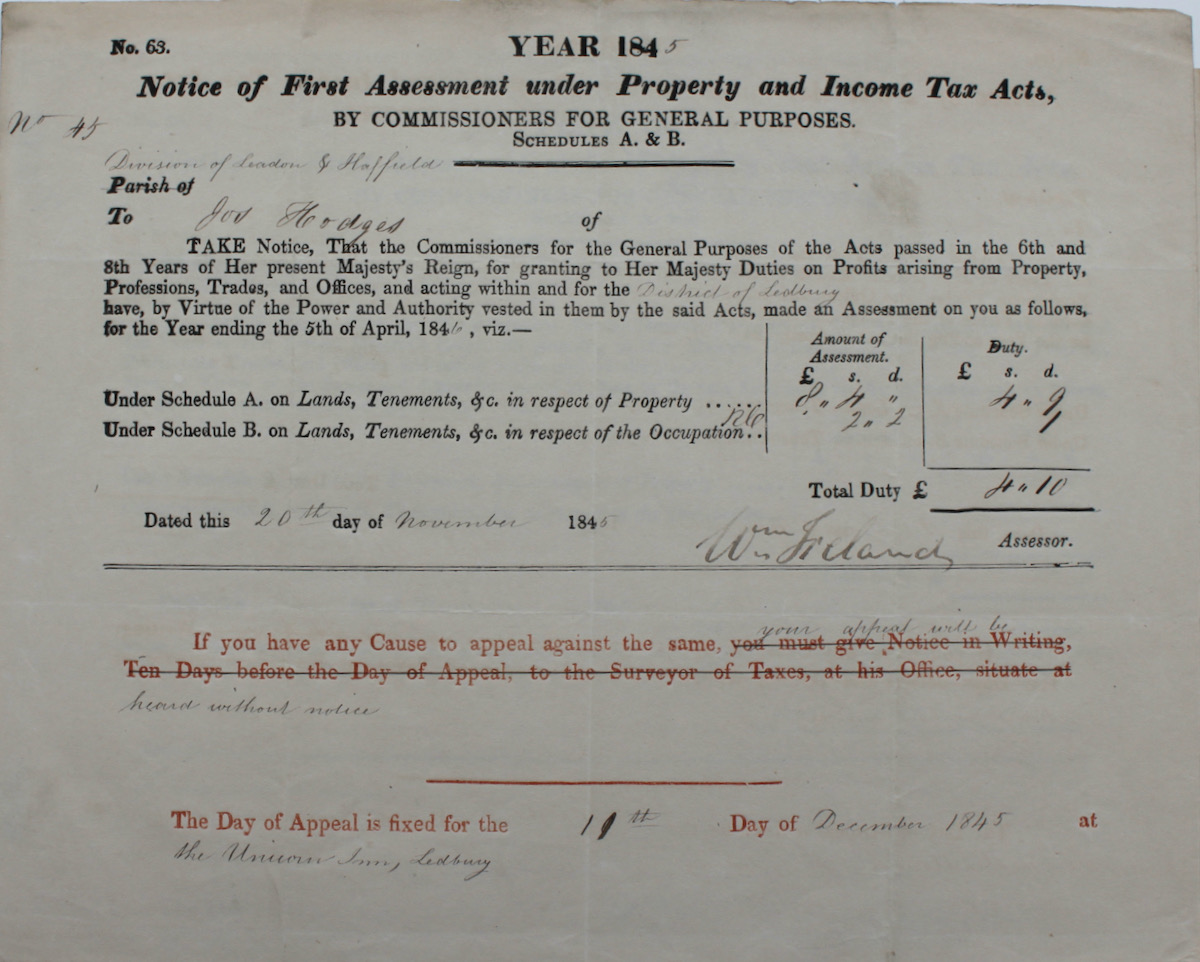 No. 63.
YEAR 1845
Notice of First Assessment under Property and Income Tax Acts,
No 45
BY COMMISSIONERS FOR GENERAL PURPOSES.
SCHEDULES A. & B.
Division of Leadon & Haffield
Parish of
To Jos Hodges of
TAKE Notice, That the Commissioners for the General Purposes of the Acts passed in the 6th and
8th Years of Her present Majesty's Reign, for granting to Her Majesty Duties on Profits arising from Property,
Professions, Trades, and Offices, and acting within and for the District of Ledbury
have, by Virtue of the Power and Authority vested in them by the said Acts, made an Assessment on you as follows,
for the Year ending the 5th of April, 1846, viz.—
Amount of Assessment. Duty.
£ s. d. £ s. d.
Under Schedule A. on Lands, Tenements, &c. in respect of Property ...... 8 " 4 " 4 " 9
Under Schedule B. on Lands, Tenements, &c. in respect of the Occupation.. 2 " 2 1
Total Duty £ 4 " 10
Dated this 20th day of November 1845
Wm Ireland Assessor.
If you have any Cause to appeal against the same, you must give Notice in Writing,
your appeal will be
Ten Days before the Day of Appeal, to the Surveyor of Taxes, at his Office, situate at
heard without notice
The Day of Appeal is fixed for the 11th Day of December 1845 at
the Unicorn Inn, Ledbury